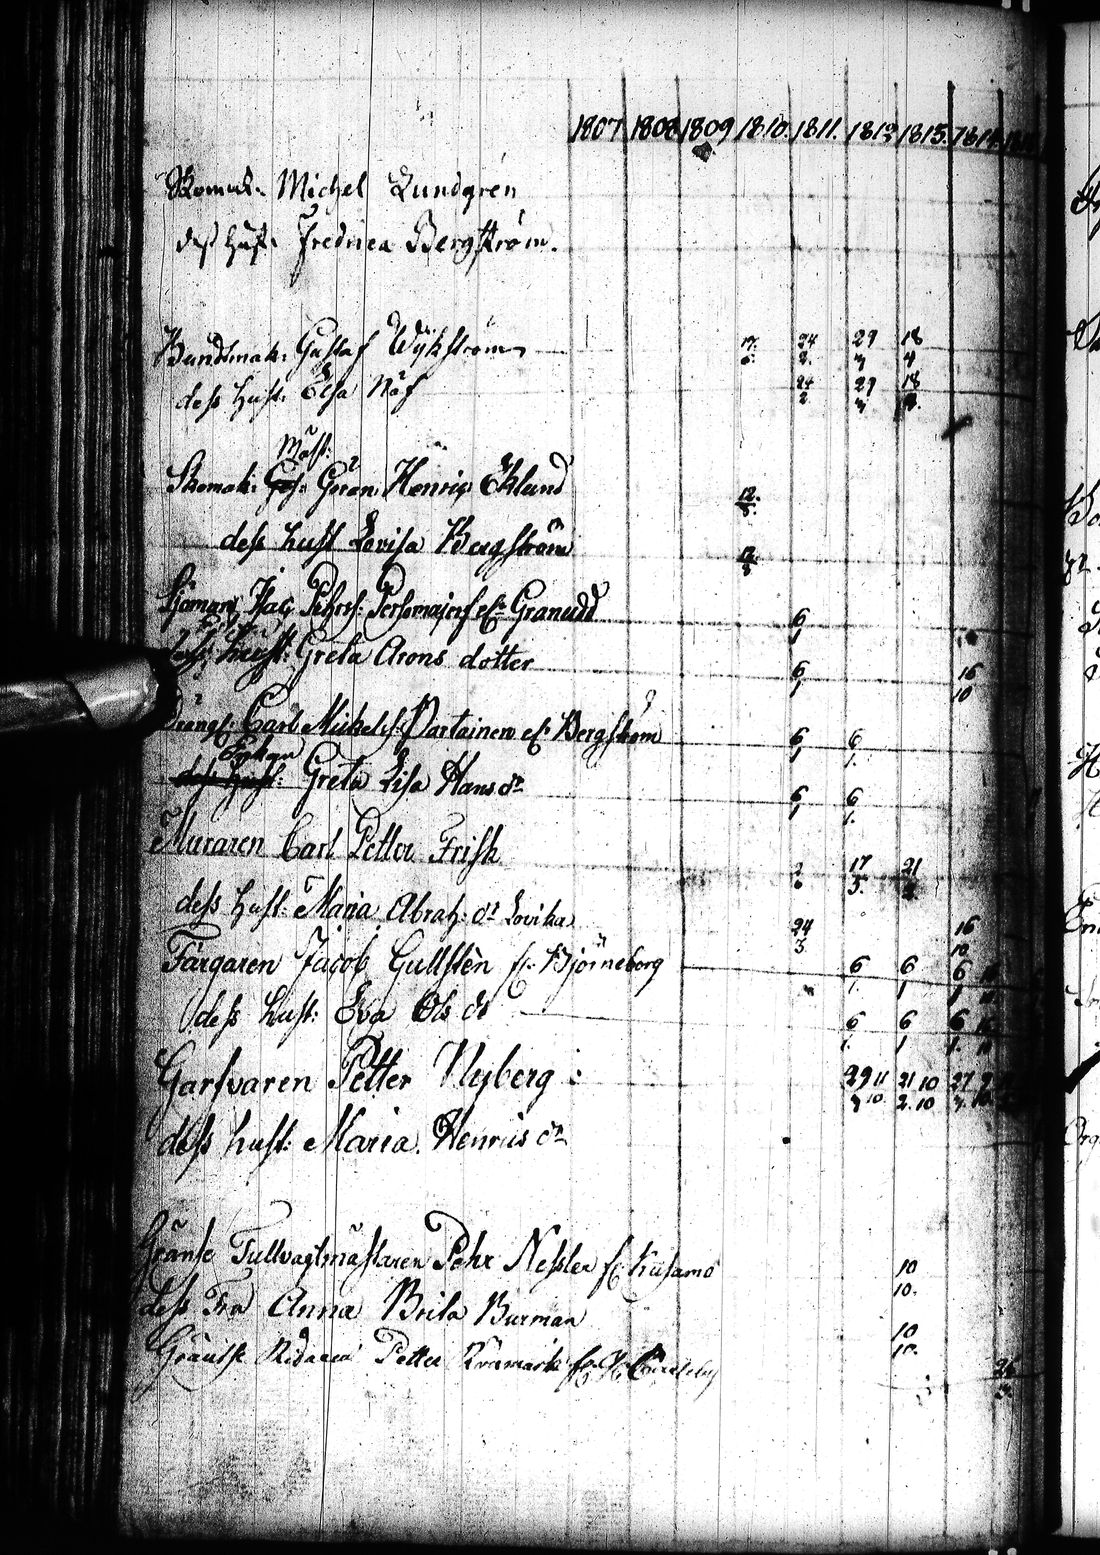 1807 1808 1809 1810. 1811. 1812 1813. 1814
Skomak. Michel Lundgren
dess hust: Fredrica Bergström.
Bundtmak: Gustaf Wijkström 17. 24 29 18
6. 2. 3 4
dess hust. Elsa Näf 24 29 18
2 3
Mäst:
Skomak: Göran Henric Eklund 12.
8.
dess hust Lovisa Bergström 12
8
Sjöman Jac Pehrss: Granudd 6
1
hust: Greta Arons dotter 6 16
1 10
Carl Michelss: Partainen Bergström 6 6
1 1.
Enkan
dess hust: Greta Lisa Hans dr 6 6
1 1.
Muraren Carl Petter Frisk 17 21
5.
dess hust: Maria Abrah: dr Lovika 24 16
3. 10
Färgaren Jacob Gullstén fr. Björneborg 6 6 6
1. 1 1
dess hust: Eva Ols dr 6 6 6
1 1.
Garfvaren Petter Nyberg : 29 11 21 10 27
3 10 2. 10 3.
dess hust: Maria. Henrics dr
Gränse Tullvagtmästaren Pehr Nessler fr Kusamo 10
10.
dess Fru Anna Brita Burman 10
10.
Gräntse Ridaren Petter